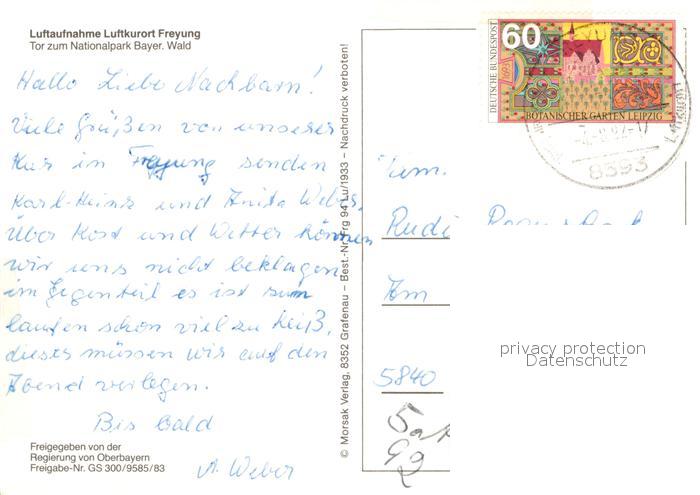 Luftaufnahme Luftkurort Freyung
Tor zum Nationalpark Bayer. Wald
Hallo Liebe Nachbarn!
Viele Grüßen von unserer
Kur in Freyung senden
Karl-Heinz und Anita Weber.
Über Kost und Wetter können
wir uns nicht beklagen
im Gegenteil es ist zum
laufen schon viel zu heiß,
dieses müssen wir auf den
Abend verlegen.
Bis bald
A. Weber
Freigegeben von der
Regierung von Oberbayern
Freigabe-Nr. GS 300/9585/83
© Morsak Verlag, 8352 Grafenau – Best.-Nr. Frg 94 Lu/1933 – Nachdruck verboten!
60
DEUTSCHE BUNDESPOST
BOTANISCHER GARTEN LEIPZIG
8393
Fam.
Rudi
Am
5840
privacy protection
Datenschutz